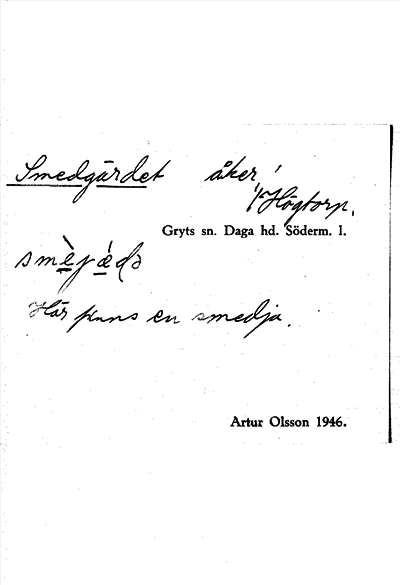 Smedgärdet åker
i/ Högtorp.
Gryts sn. Daga hd. Söderm. l.
Här finns en smedja.
Artur Olsson 1946.